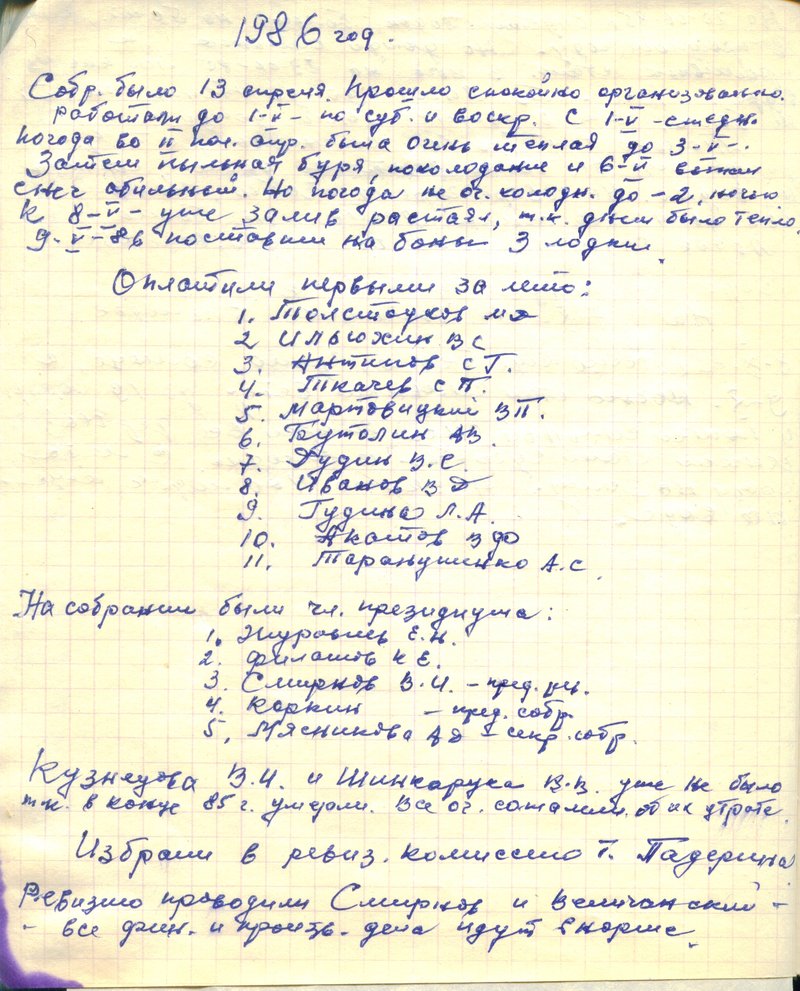 1986 год.
Собр. было 13 апреля. Прошло спокойно организовано.
Работали до 1-V- по суб. и воскр. С 1-V -ежедн.
Погода во II пол. апр. была очень теплая до 3-V-.
Затем пыльная буря, похолодание и 6-V выпал
снег обильный. Но погода не оч. холодн. до -2 ночью.
К 8-V- уже залив растаял, т.к. днем было тепло.
9-V-86 поставили на боны 3 лодки.
Оплатили первыми за лето:
1. Толстоухов
2 Ильюхин В С
3. Антипов С Г.
4. Ткачев С П.
5. Мартовицкий В П.
6. Бутолин АВ.
7. Рудин В.С.
8. Иванов В Д
9. Гудина Л.А.
10. Акатов В
11. Таранушенко А.С.
На собрании были чл. президиума:
1. Журавлев Е.Н.
2. Филатов К Е.
3. Смирнов В.И. - пред.
4. Каркин - пред. собр.
5. Мясникова АД - секр. собр.
Кузнецова В.И. и Шинкарука В.В. уже не было
т.к. в конце 85 г. умерли. Все оч. сожалели об их утрате.
Избрали в ревиз. комиссию т. Падерина
Ревизию проводили Смирнов и Величанский -
- все фин. и произв. дела идут в норме.